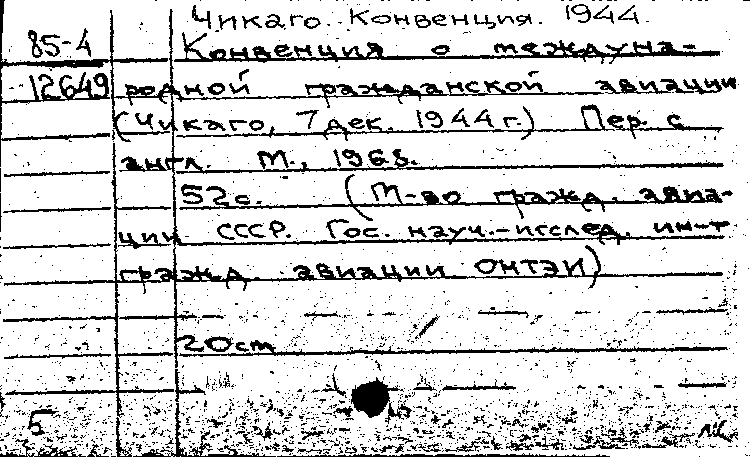 Чикаго. Конвенция. 1944.
85-4 Конвенция о междуна-
12649 родной гражданской авиации
(Чикаго, 7 дек. 1944 г.) Пер. с
англ. М., 1968.
52с. (М-во гражд. авиа-
ции СССР. Гос. науч.-исслед. ин-т
гражд. авиации ОНТЭИ)
20ст
5